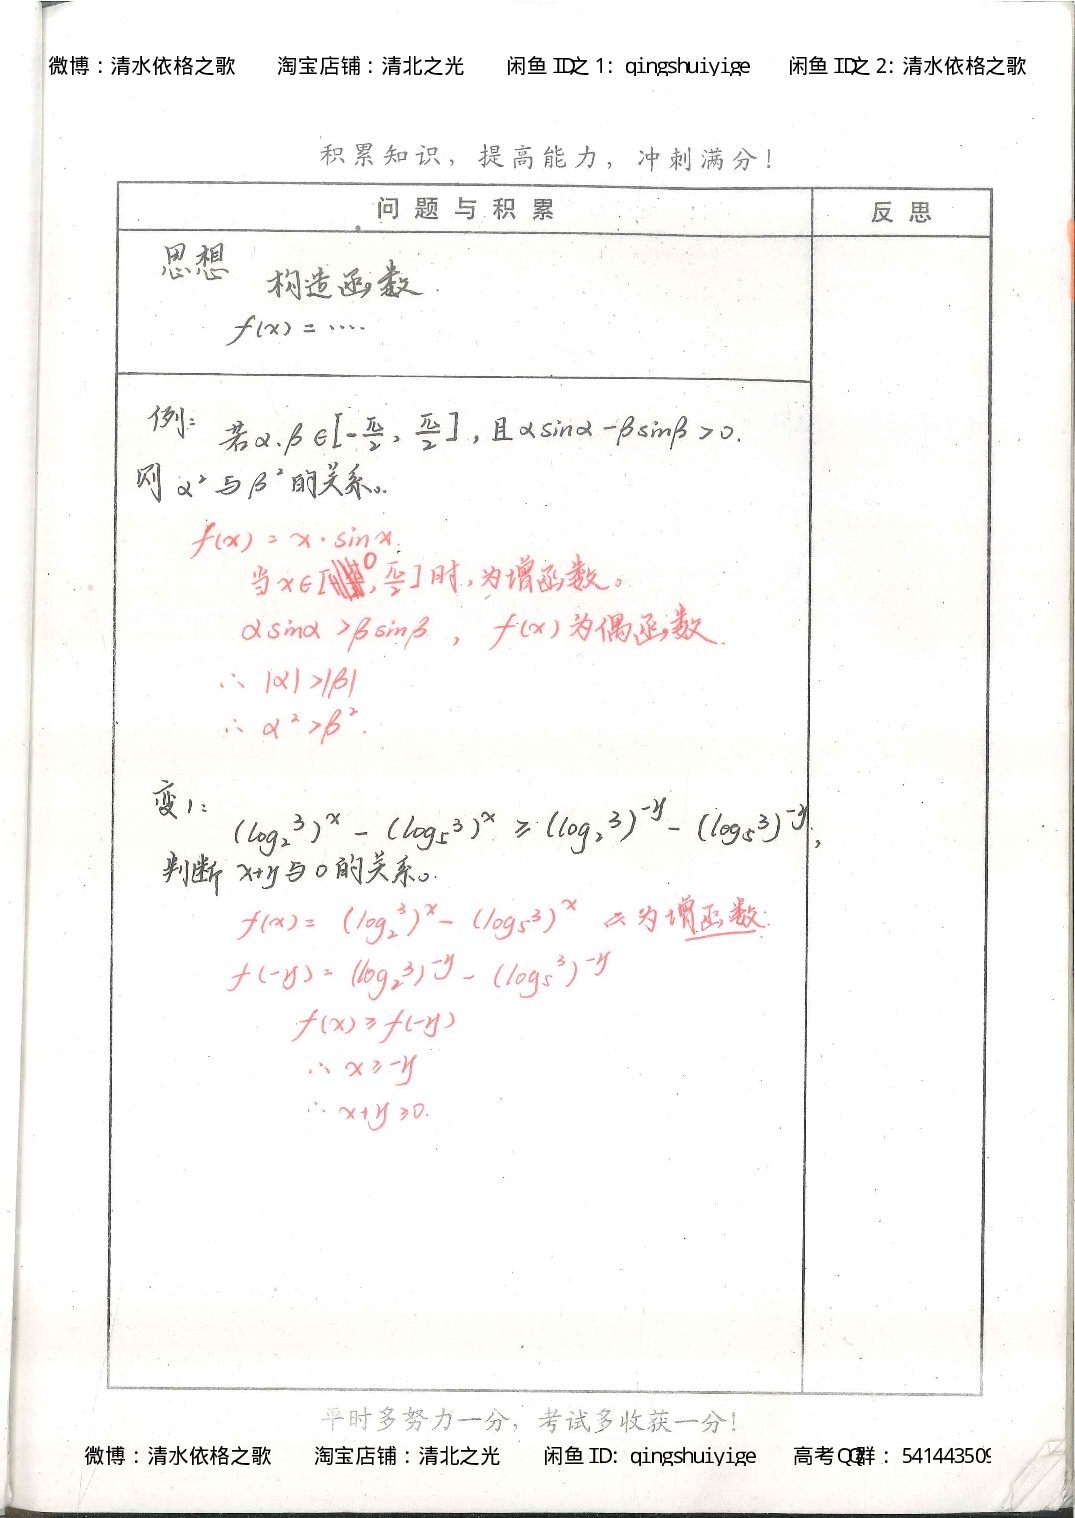 微博：清水依格之歌 淘宝店铺：清北之光 闲鱼 ID之 1：qingshuiyige 闲鱼 ID之 2：清水依格之歌
积累知识，提高能力，冲刺满分！
问题与积累 反思
思想
构造函数
f(x) = ····
例：若α、β∈[-π/2, π/2]，且αsinα-βsinβ>0.
则 α² 与 β² 的关系。
f(x) = x·sinx.
当x∈[0, π/2]时,为增函数。
αsinα>βsinβ，f(x)为偶函数.
∴ |α|>|β|
∴ α²>β².
变1：(log₂3)^x - (log₅3)^x ≥ (log₂3)^-y - (log₅3)^-y,
判断 x+y与0的关系。
f(x) = (log₂3)^x - (log₅3)^x 为增函数.
f(-y) = (log₂3)^-y - (log₅3)^-y
f(x) ≥ f(-y)
∴ x≥-y
∴ x+y≥0.
平时多努力一分，考试多收获一分！
微博：清水依格之歌 淘宝店铺：清北之光 闲鱼 ID：qingshuiyige 高考QQ群：541443509